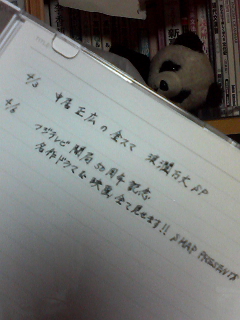 4/3 中居正広の金スマ 波瀾万丈SP
4/6 フジテレビ開局50周年記念
名作ドラマ&映画全て見せます!! SMAP PRESENTS